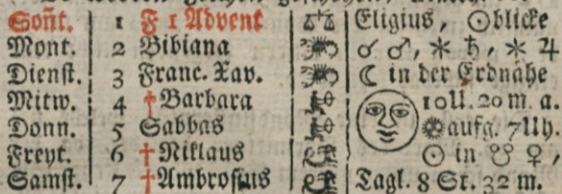 Soñt. 1 F 1 Advent ♎ Eligius, ☉blicke
Mont. 2 Bibiana ♏ ☌ ♂, ⚹ ♄, ⚹ ♃
Dienst. 3 Franc. Xav. ♏ ☾ in der Erdnähe
Mitw. 4 †Barbara ♐ 10U. 20 m. a.
Donn. 5 Sabbas ♐ aufg. 7Uh.
Freyt. 6 †Niklaus ♑ ☉ in ☋ ♀,
Samst. 7 †Ambrosius ♑ Tagl. 8 St. 32 m.